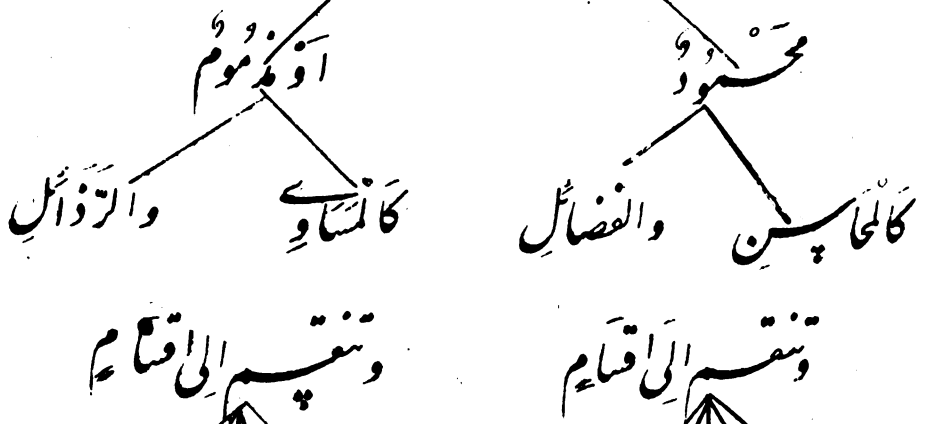 مَحْمُودٌ اَوْ مَذْمُومٌ
كَالْمَحَاسِنِ والفضائلِ كَالْمَسَاوِے والرَّذَائلِ
وتنقسم اِلَى اقسَامٍ وتنقسم اِلى اقسَامٍ